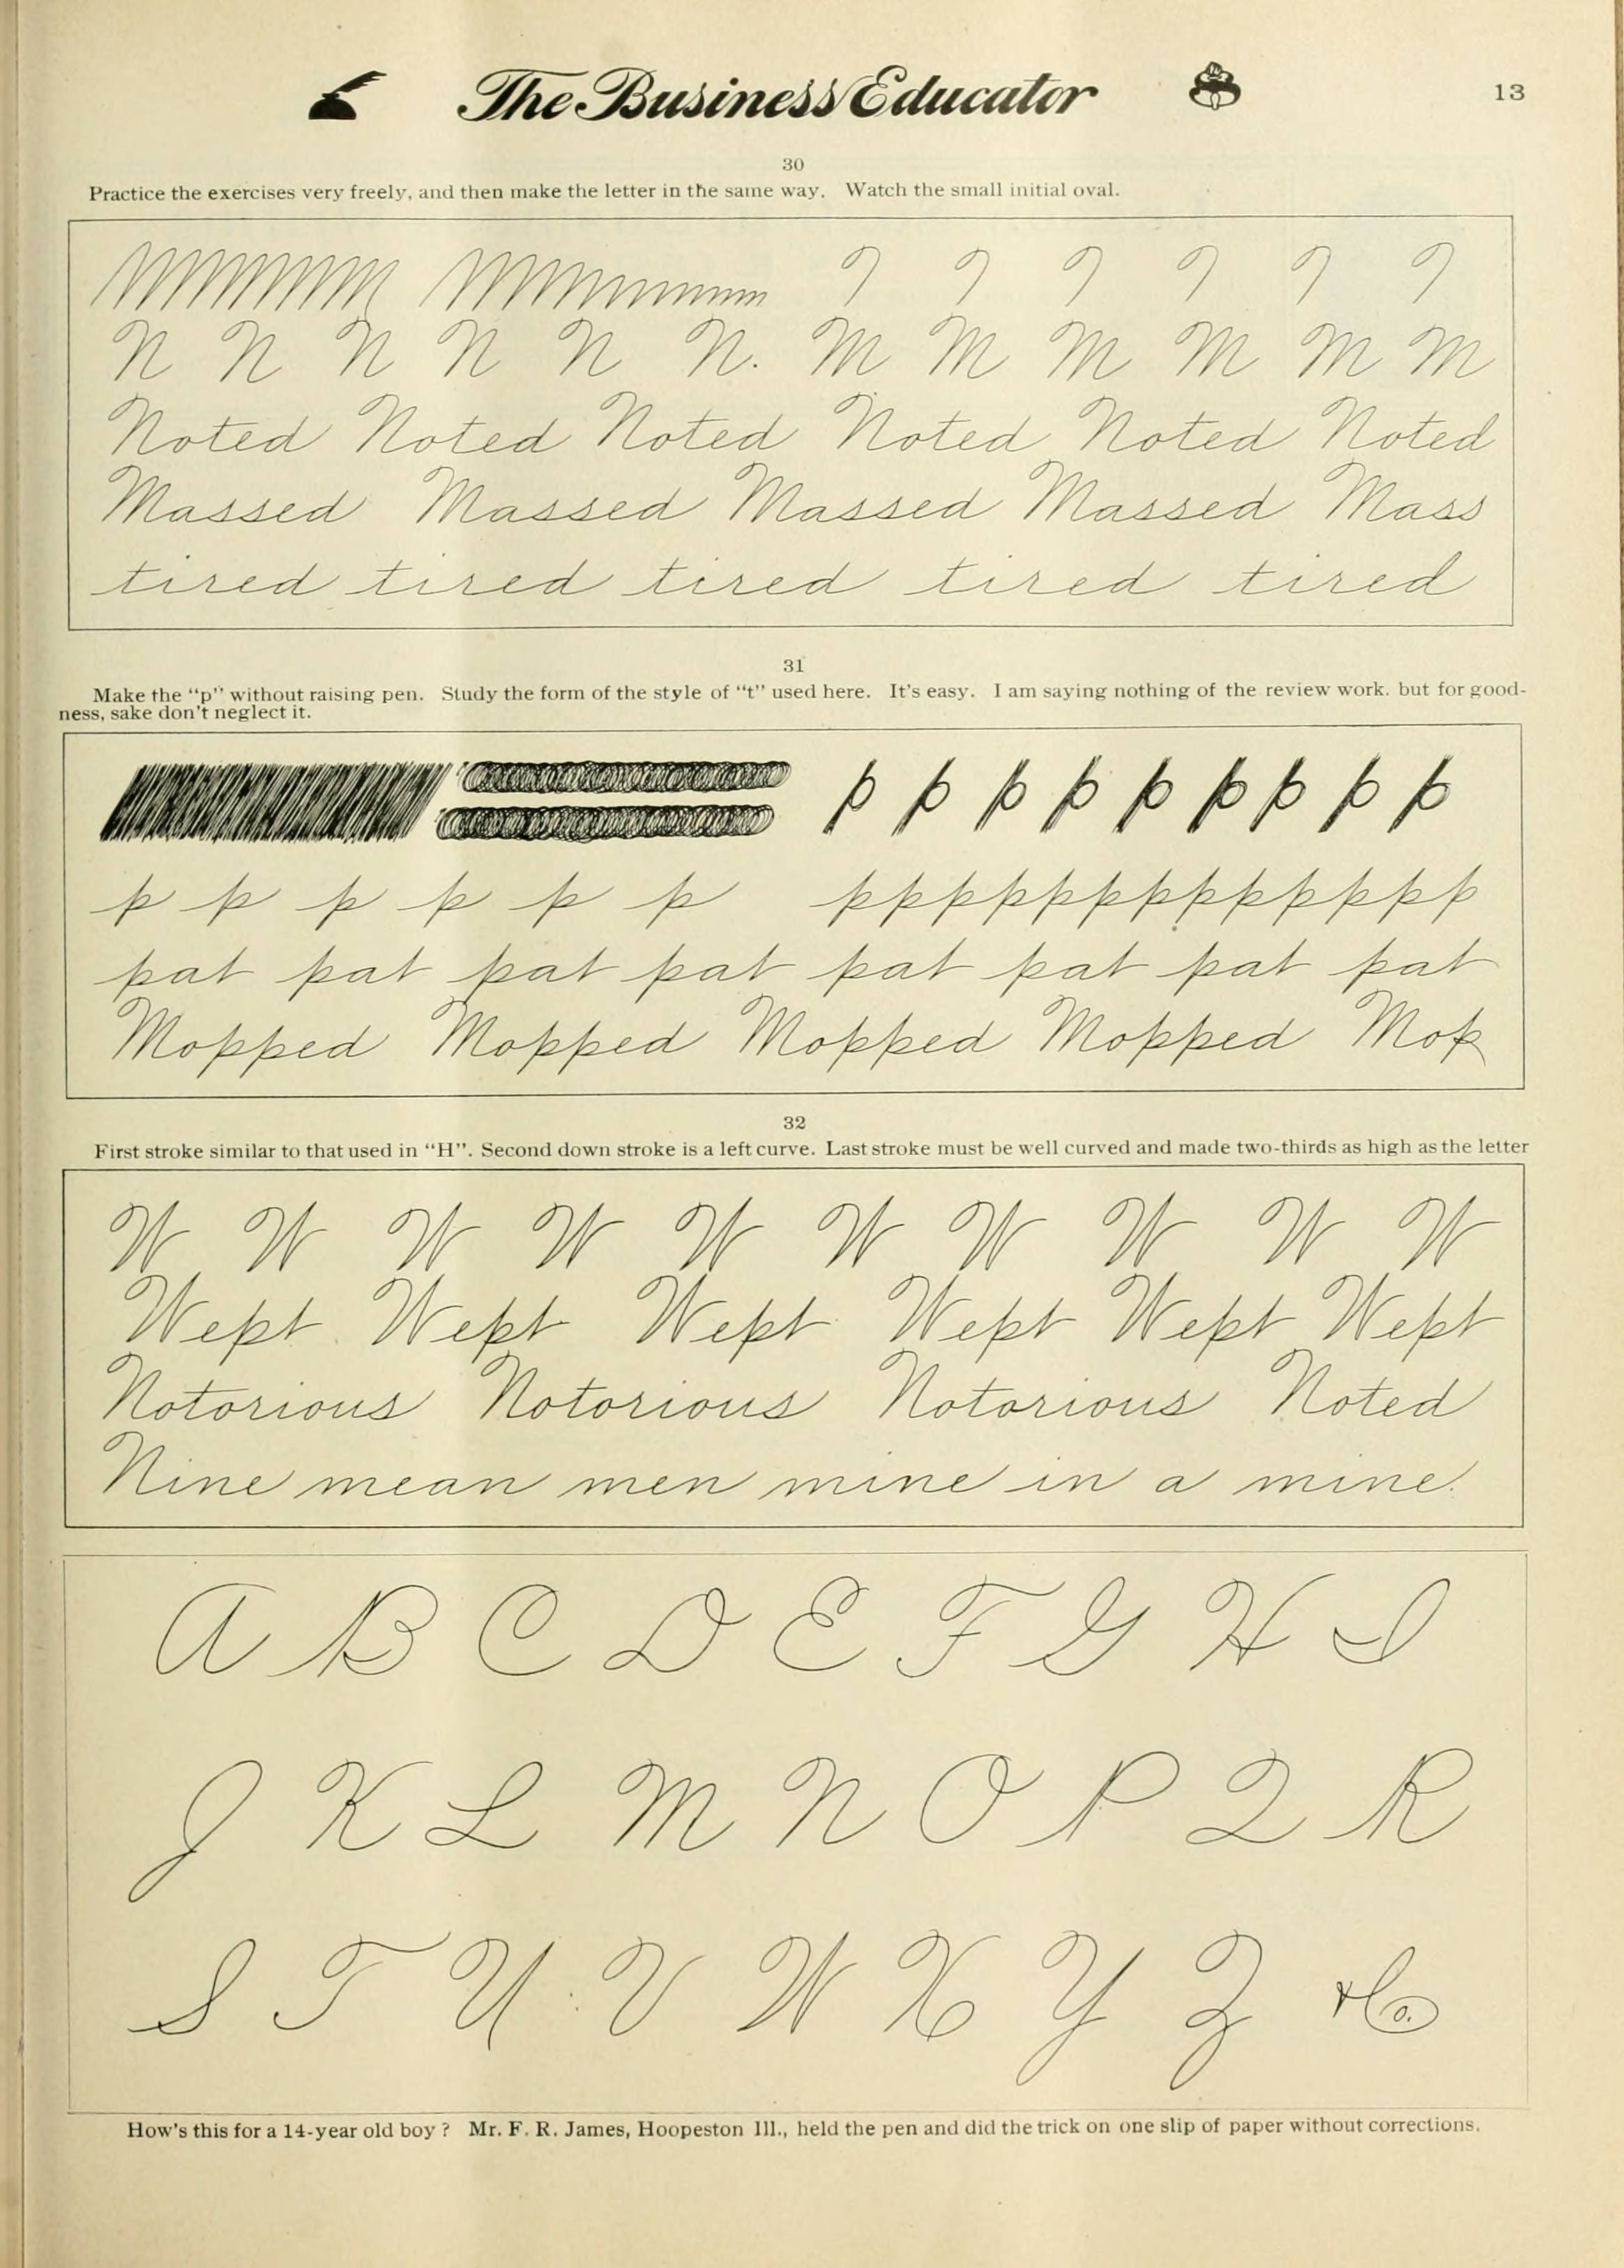 The Business Educator
13
30
Practice the exercises very freely, and then make the letter in the same way. Watch the small initial oval.
N N N N N N. M M M M M M
Noted Noted Noted Noted Noted Noted
Massed Massed Massed Massed Mass
tired tired tired tired tired
31
Make the "p" without raising pen. Study the form of the style of "t" used here. It's easy. I am saying nothing of the review work. but for good-
ness, sake don't neglect it.
p p p p p p p p p
p p p p p p p p p p p p p p p p p p p p
pat pat pat pat pat pat pat pat
Mopped Mopped Mopped Mopped Mop
32
First stroke similar to that used in "H". Second down stroke is a left curve. Last stroke must be well curved and made two-thirds as high as the letter
W W W W W W W W W W
Wept Wept Wept Wept Wept Wept
Notorious Notorious Notorious Noted
Nine mean men mine in a mine.
A B C D E F G H I
J K L M N O P Q R
S T U V W X Y Z
How's this for a 14-year old boy? Mr. F. R. James, Hoopeston Ill., held the pen and did the trick on one slip of paper without corrections.